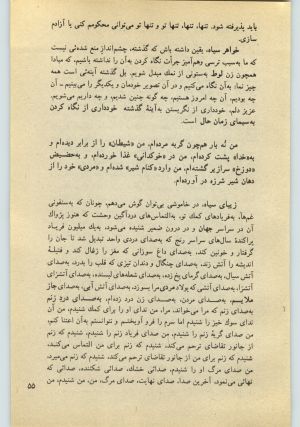 باید پذیرفته شود. تنها، تنها، تنها تو و تنها تو می‌توانی محکومم کنی یا آزادم
سازی.
خواهر سیاه، یقین داشته باش که گذشته، چشم‌انداز منع شده‌ئی نیست
که ما به‌سبب ترسی وهم‌آمیز جرأت نگاه کردن به‌آن را نداشته باشیم، که مبادا
همچون زن لوط به‌ستونی از نمک مبدل شویم. بل گذشته آینه‌ئی است همه
چیز نما، به‌آن نگاه می‌کنیم و در آن تصویر خودمان و یکدیگر را می‌بینیم ـ آن
چه بودیم، آن چه امروز هستیم، چه گونه چنین شدیم، و چه داریم می‌شویم.
عزیز دلم، خودداری از نگریستن به‌آینهٔ گذشته خودداری از نگاه کردن
به‌سیمای زمان حال است.
من نُه بار هم‌چون گربه مرده‌ام، من «شیطان» را از برابر دیده‌ام و
به‌«خدا» پشت کرده‌ام، من در «خوکدانی» غذا خورده‌ام، و به‌حضیض
«دوزخ» سرازیر گشته‌ام، من وارد «کنام شیر» شده‌ام و «مردی» خود را از
دهان شیر شرزه در آورده‌ام.
زیبای سیاه، در خاموشی برای‌تان گوش می‌دهم، چونان که به‌سنفونی
غم‌ها، به‌فریادهای کمك تو، به‌التماس‌های دردآگین وحشت که هنوز پژواك
آن در سراسر جهان و در درون ضمیر شنیده می‌شود، به‌یك میلیون فریاد
پراکندهٔ سال‌های سراسر رنج که به‌صدای دردی واحد تبدیل شد تا جان را
گرفتار و خونین کند، به‌صدای داغ سوزانی که مغز را زغال کند و فتیلهٔ
اندیشه را آتش زند، به‌صدای چنگال و دندان تیزی که قلب را بدرد، به‌صدای
آتش سیال، به‌صدای گرمای یخ زده، به‌صدای شعله‌های لیسنده، به‌صدای آتشزای
آتشزا، در خاموشی آتشی که پولاد مردی مرا بسوزد، به‌صدای آتش آبی، به‌صدای جاز
ملایم، به‌صدای مردن، به‌صدای زن درد زده‌ام، به‌صدای درد زنم
به‌صدای زنم که مرا می‌خواند، مرا، من ندای او را برای کمك شنیدم، من آن
ندای سوك خیز را شنیدم اما سرم را فرو آویختم و نتوانستم به‌آن اعتنا کنم،
من صدای گریهٔ زنم را شنیدم، من صدای فریاد زنم را شنیدم، شنیدم که زنم
از جانور تقاضای ترحم می‌کند، شنیدم که زنم برای من التماس می‌کند،
شنیدم که زنم برای من از جانور تقاضای ترحم می‌کند، شنیدم که زنم می‌میرد،
من صدای مرگ او را شنیدم، صدائی خشك، صدائی شکننده، صدائی که
نهائی می‌نمود، آخرین صدا، صدای نهایت، صدای مرگ، من، من شنیدم، من
۵۵